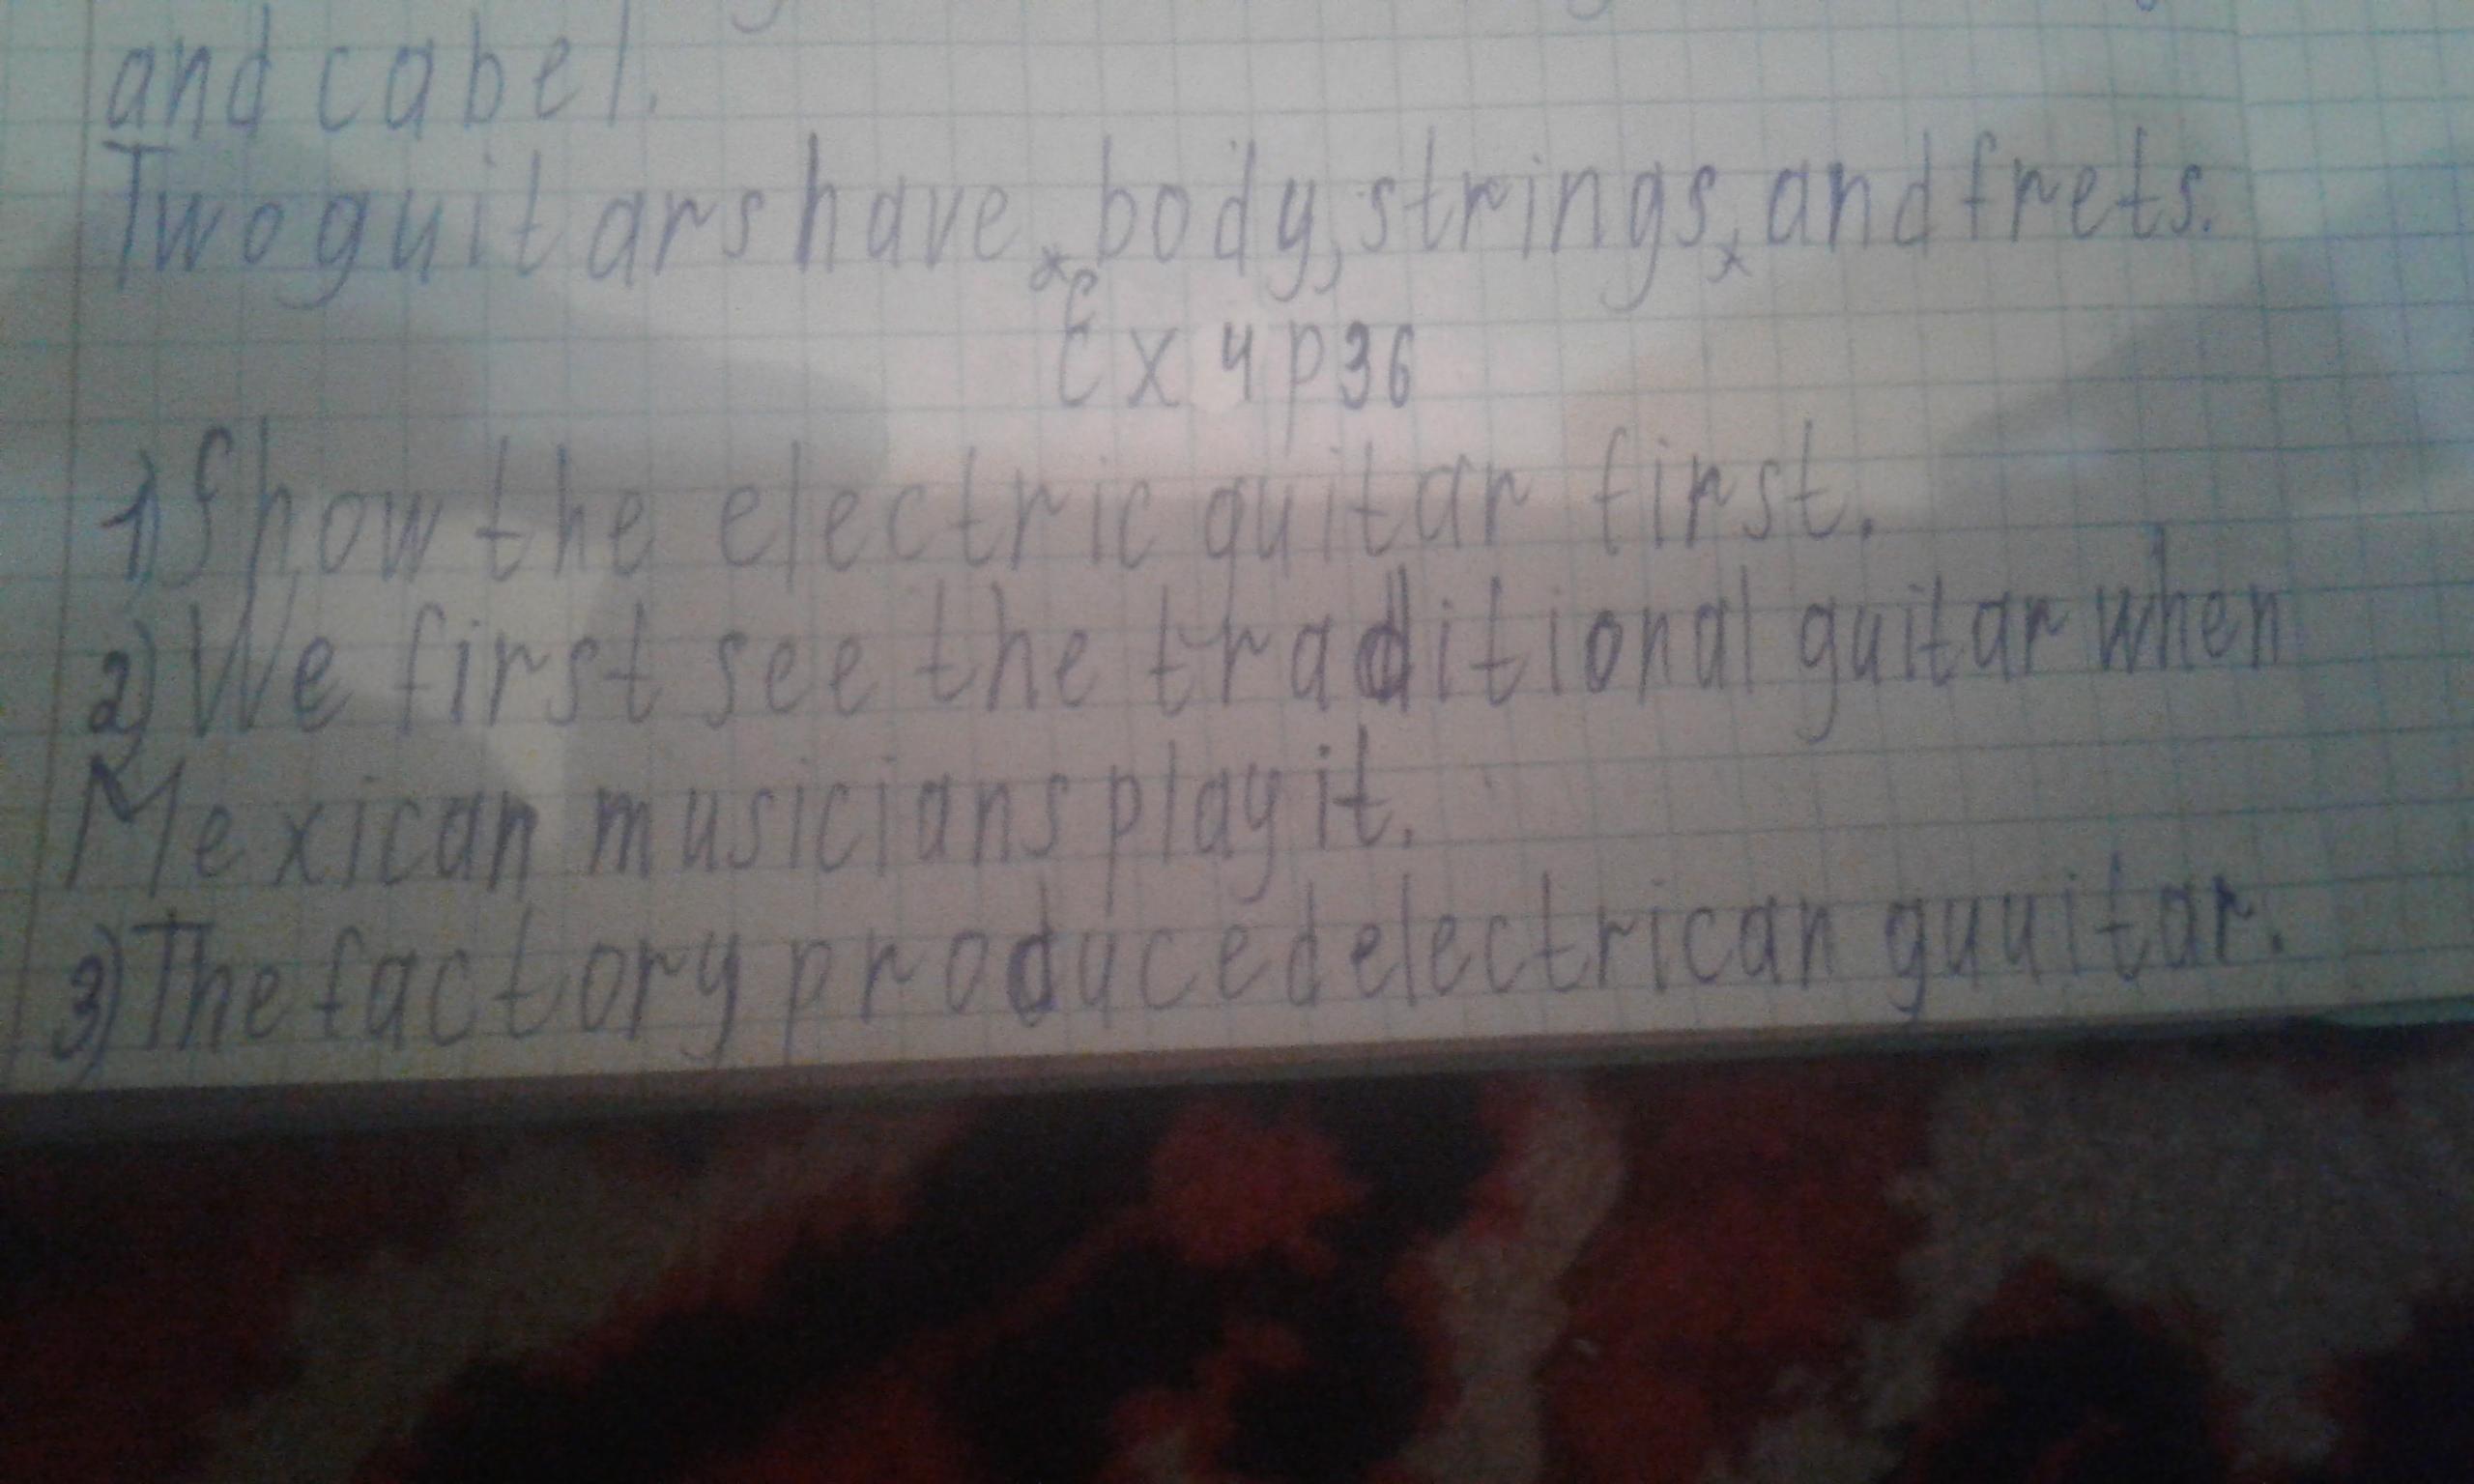 and cabel.
Two guitars have body, strings, and frets.
Ex 4 p 36
1) Show the electric guitar first.
2) We first see the traditional guitar when
Mexican musicians play it.
3) The factory produced electrican guuitar.